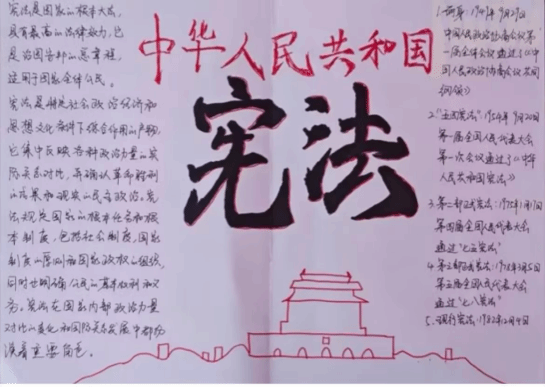 宪法是国家的根本大法,
具有最高的法律效力,它
是治国安邦的总章程,
适用于国家全体公民。
宪法是特定社会政治经济和
思想文化条件下综合作用的产物,
它集中反映各种政治力量的实
际关系对比,并确认革命胜利
成果和现实的民主政治,宪
法规定国家的根本任务和根
本制度,包括社会制度,国家
制度的原则和国家政权的组织,
同时也明确公民的基本权利和义
务。宪法在国家内部政治力量
对比的变化和国际关系发展中都扮
演着重要角色。
中华人民共和国
宪法
1949年9月29日
中国人民政治协商会议第
一届全体会议通过了《中
国人民政治协商会议共同
纲领》
2."五四宪法":1954年9月20日
第一届全国人民代表大会
第一次会议通过了《中华
人民共和国宪法》
3.第二部正式宪法:1975年1月17日
第四届全国人民代表大会
通过"七五宪法"
4.第三部正式宪法:1978年3月5日
第五届全国人民代表大会
通过"七八宪法"
5.现行宪法:1982年12月4日